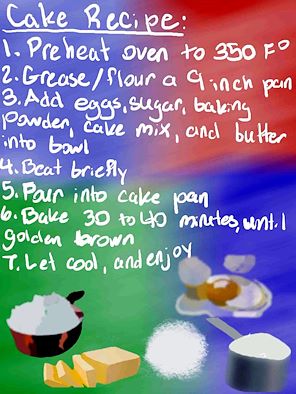 Cake Recipe:
1. Preheat oven to 350 F°
2. Grease/flour a 9 inch pan
3. Add eggs, sugar, baking
powder, cake mix, and butter
into bowl
4. Beat briefly
5. Pour into cake pan
6. Bake 30 to 40 minutes, until
golden brown
7. Let cool, and enjoy